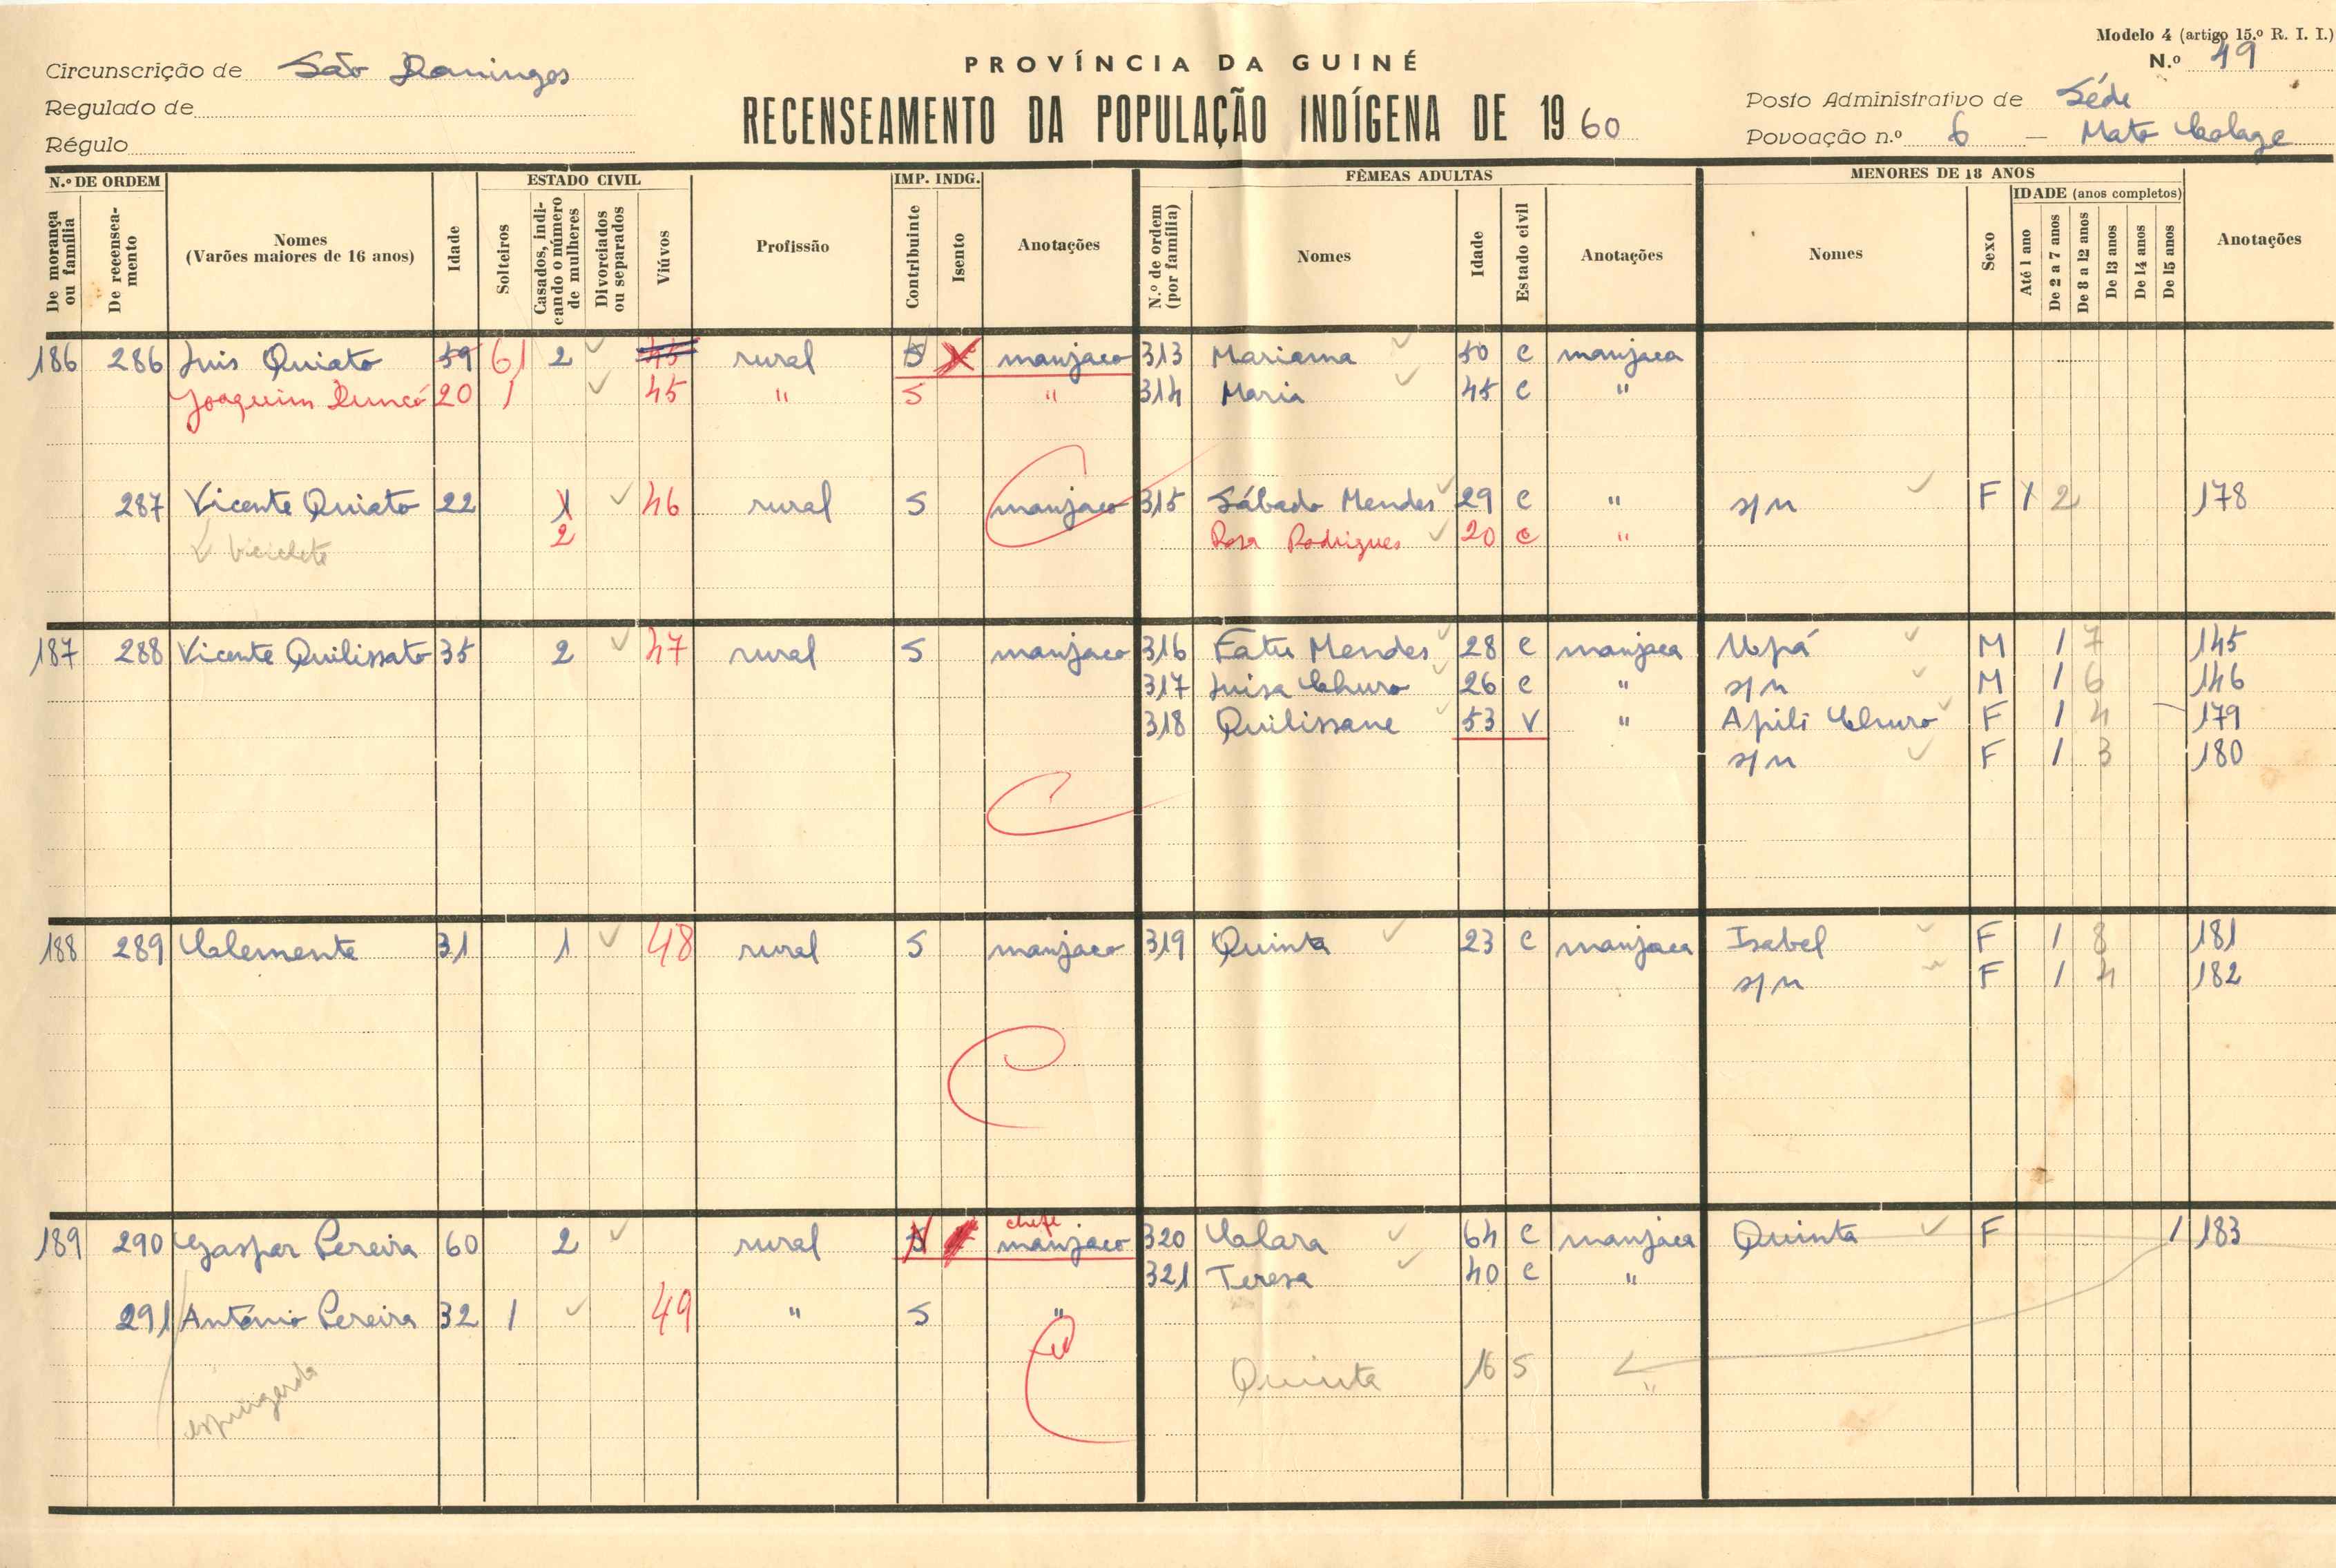 Modelo 4 (artigo 15.º R. I. I.)
Circunscrição de São Domingos PROVÍNCIA DA GUINÉ N.º 49
Regulado de RECENSEAMENTO DA POPULAÇÃO INDÍGENA DE 1960 Posto Administrativo de Séde
Régulo Povoação n.º 6 — Mato
N.º DE ORDEM ESTADO CIVIL IMP. INDG. FÊMEAS ADULTAS MENORES DE 18 ANOS
De morança ou família De recenseamento Nomes (Varões maiores de 16 anos) Idade Solteiros Casados, indicando o número de mulheres Divorciados ou separados Viúvos Profissão Contribuinte Isento Anotações N.º de ordem (por família) Nomes Idade Estado civil Anotações Nomes Sexo IDADE (anos completos) Até 1 ano De 2 a 7 anos De 8 a 12 anos De 13 anos De 14 anos De 15 anos Anotações
186 286 Luis Quiato 59 61 2 45 rural S X manjaco 313 Mariama 50 c manjaca
Joaquim 20 1 45 " S " 314 Maria 45 c "
287 Vicente Quiato 22 1 46 rural S manjaco 315 Sábado Mendes 29 c " s/n F 1 2 178
biciclete 2 Rosa Rodrigues 20 c "
187 288 Vicente Quilissato 35 2 47 rural S manjaco 316 Fatu Mendes 28 c manjaca Upá M 1 7 145
317 Luisa Churo 26 c " s/n M 1 6 146
318 Quilissane 53 V " Apili Churo F 1 4 179
s/n F 1 3 180
188 289 Clemente 31 1 48 rural S manjaco 319 Quinta 23 c manjaca Isabel F 1 8 181
s/n F 1 4 182
chefe
189 290 Gaspar Pereira 60 2 rural manjaco 320 Clara 64 c manjaca Quinta F 1 183
321 Teresa 40 c "
291 António Pereira 32 1 49 " S "
Quinta 16 S "
espingarda